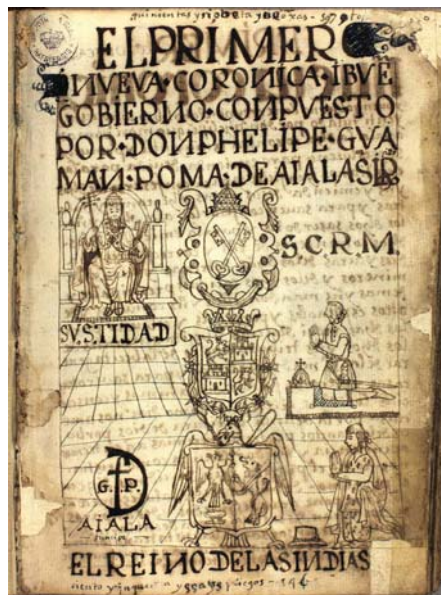 EL PRIMER
NVEVA·CORONICA·IBVE
GOBIERNO·CONPVESTO
POR·DON PHELIPE·GVA
MAN·POMA·DE AIALA SIR
S.C.R.M.
SV.S.TIDAD
G. P.
AIALA
EL REINO DE LAS INDIAS